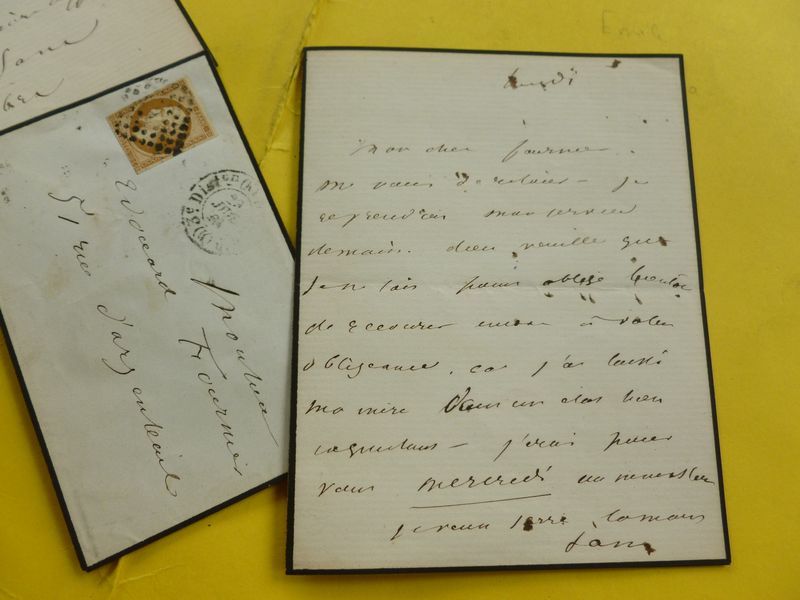 lundi
Mon cher Fournier.
me voici de retour — je
reprendrai mon service
demain. dieu veuille que
je ne sois pas obligé bientôt
de recourir encore à votre
obligeance, car j'ai laissé
ma mère dans un état bien
inquiétant — j'irai pour
vous mercredi
je vous serre la main
Monsieur
Fournier
Edouard
51 rue d'argenteuil